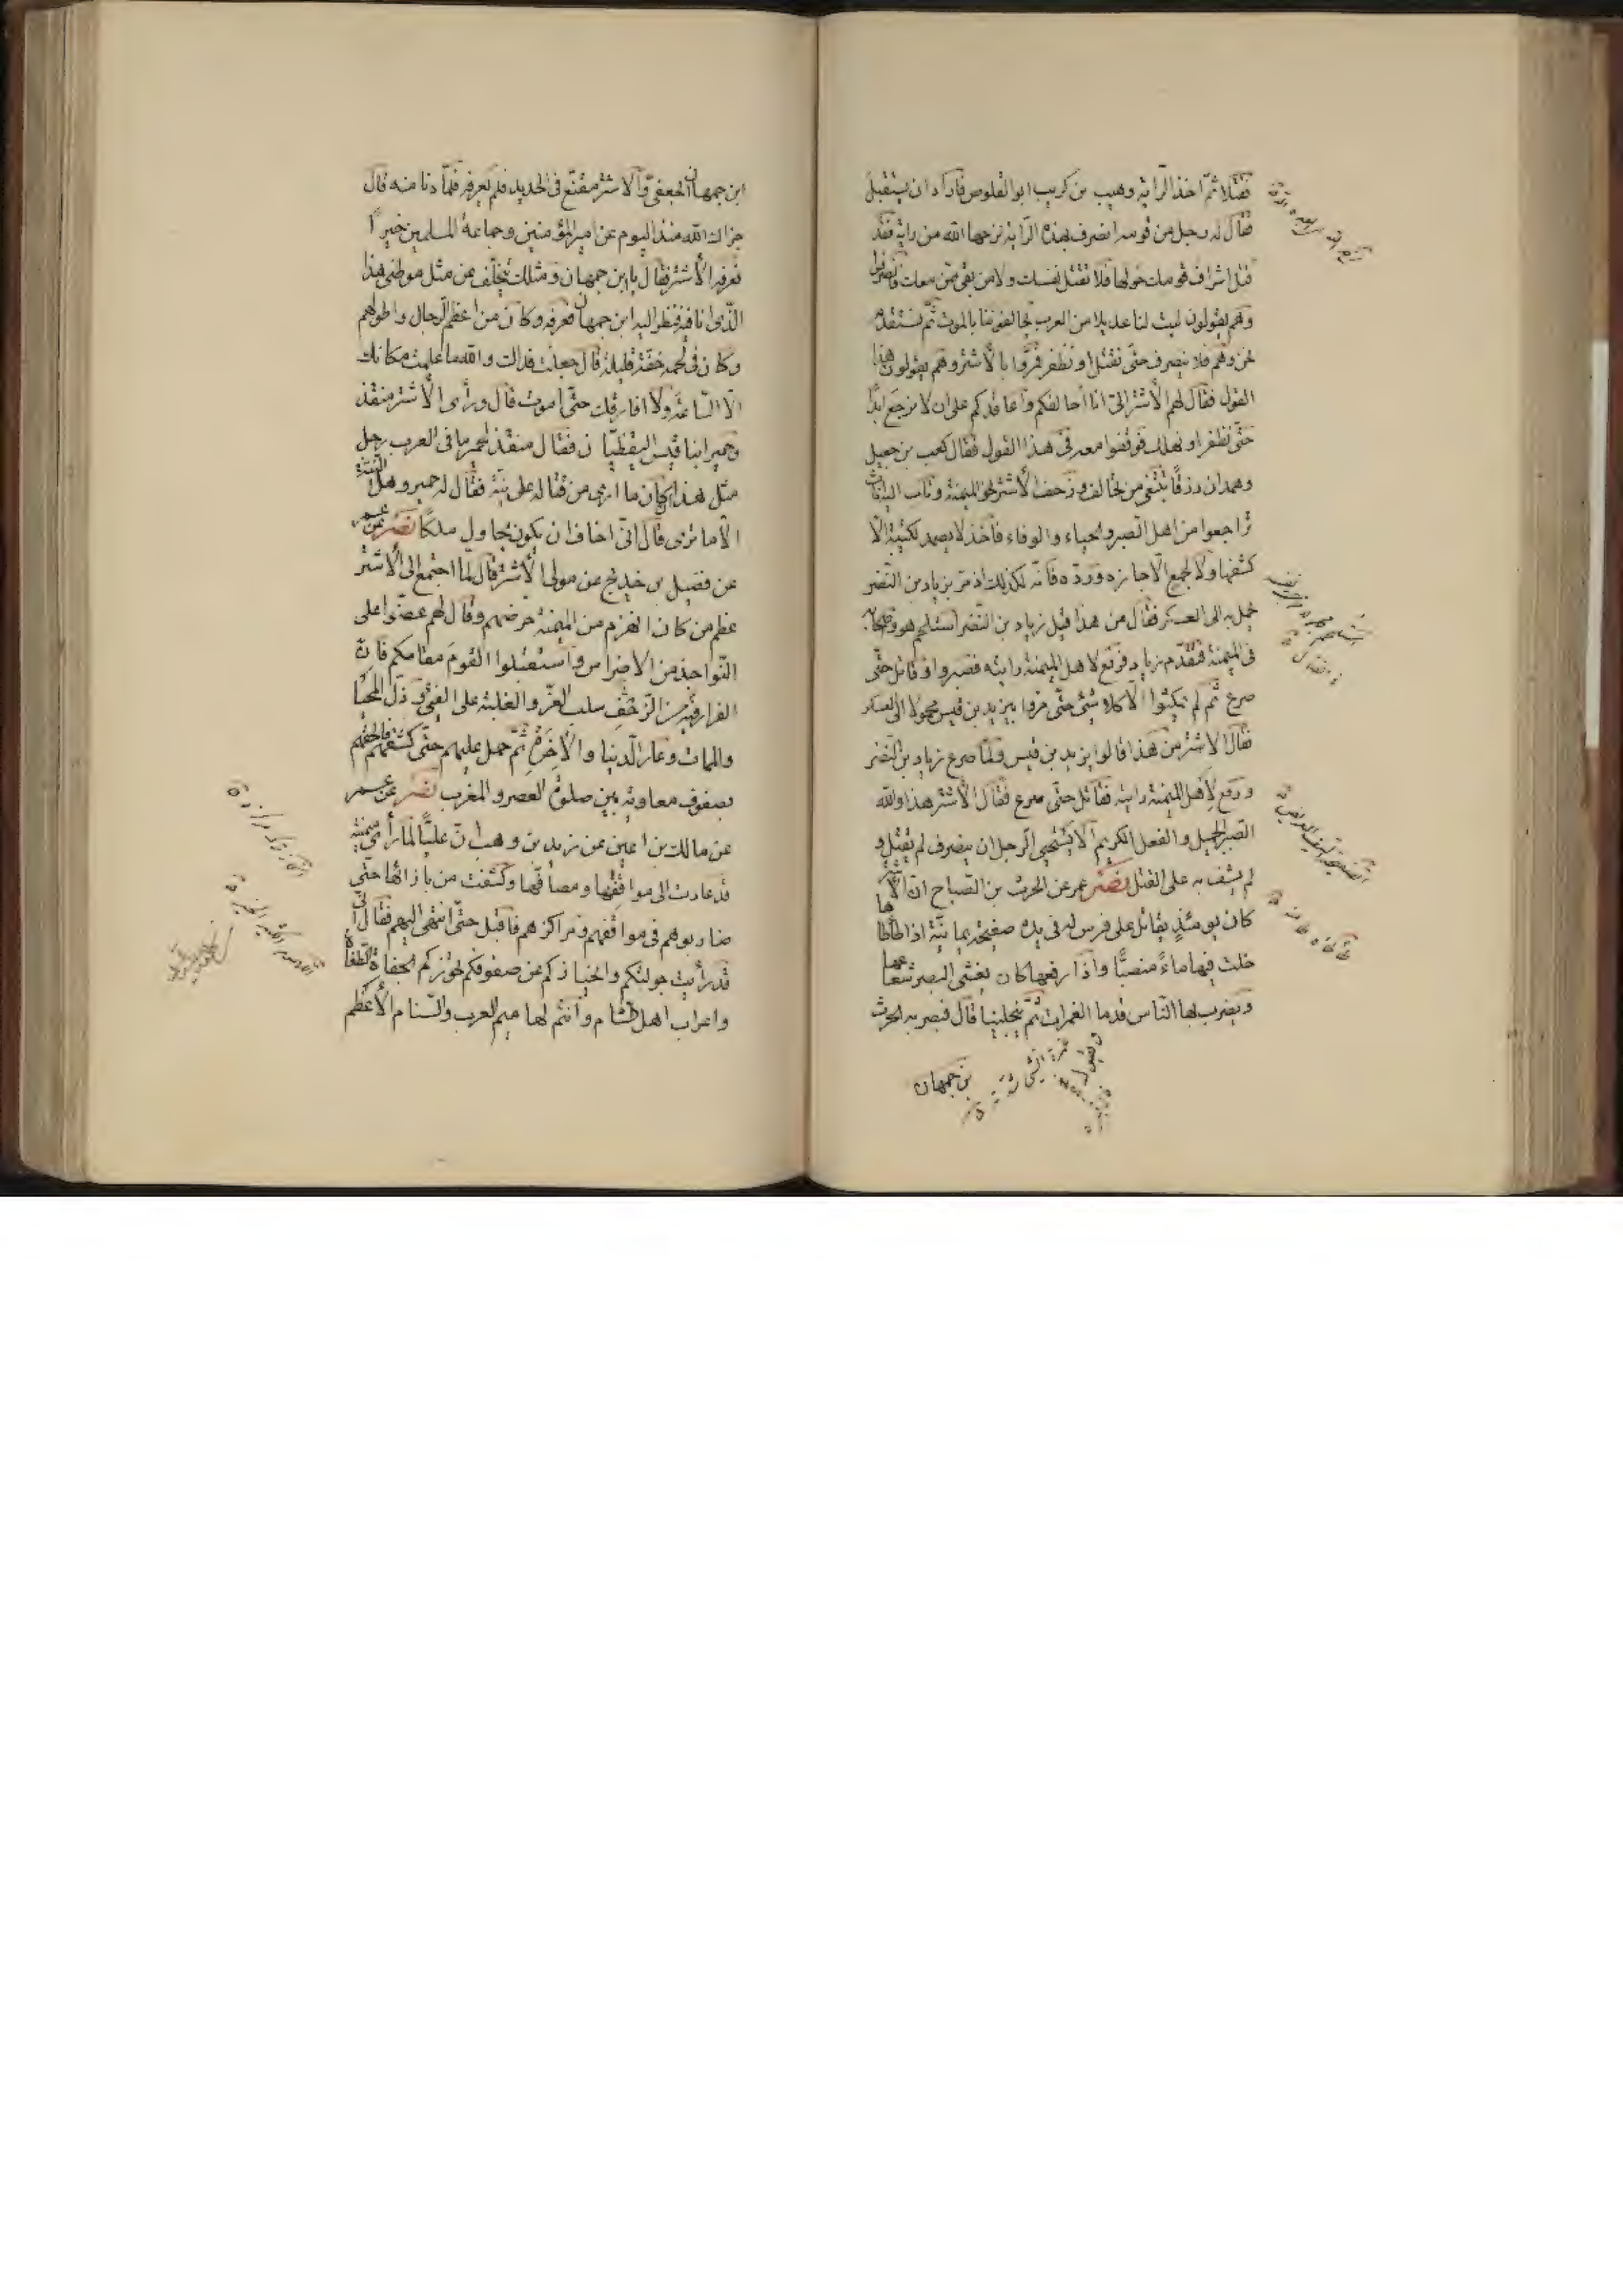 فقتلا ثمّ اخذ الرّاية وهيب بن كريب ابو القلوص فاراد ان يستقبل
فقال له رجل من قومه انصرف بهذه الرّاية ترحها الله من راية فقد
قتل اشراف قومك حولها فلا تقتل نفسك ولا من بقى ممّن معك فانصرفوا
وهم يقولون ليت لنا عديلا من العرب يحالفوننا بالموت ثمّ نستقدم
نحن وهم فلا ننصرف حتّى نقتل او نظفر فمرّوا بالأشتر وهم يقولون هذا
القول فقال لهم الأشتر الىّ انا احالفكم واعاقدكم على ان لا نرجع ابدًا
حتّى نظفر او نهلك فوقفوا معه فى هذا القول فقال كعب بن جعيل
وهمدان زرقًا تبتغى من تحالف وزحف الأشتر نحو الميمنة وثاب اليه ناس
تراجعوا من اهل الصبر والحياء والوفاء فأخذ لا يصمد لكتيبة الّا
كشفها ولا لجمع الّا حازه وردّه فانّه لكذلك اذ مرّ بزياد بن النّضر
يحمل به الى العسكر فقال من هذا قيل زياد بن النّضر استلحم هو واصحابه
فى الميمنة فتقدّم زياد فرفع لاهل الميمنة رايته فصبروا وقاتل حتّى
صرع ثمّ لم يمكثوا الّا كلا شئ حتّى مرّوا بيزيد بن قيس محمولا الى العسكر
فقال الاشتر من هذا قالوا يزيد بن قيس ولمّا صرع زياد بن النّضر
ورفع لأهل الميمنة رايته فقاتل حتّى صرع فقال الأشتر هذا والله
الصّبر الجميل والفعل الكريم ألا يستحيى الرّجل ان ينصرف لم يقتل و
لم يشف به على القتل نصر عمر عن الحرث بن الصّباح انّ الأشتر
كان يومئذٍ يقاتل على فرس له فى يده صفيحة يمانيّة اذا طأطأها
خلت فيها ماءً منصبًّا واذا رفعها كان يغشى البصر شعاعها
ويضرب بها النّاس قدما الغمرات ثمّ ينجلينا قال فبصر به الحرث
بن جمهان
ابن جمهان الجعفىّ والاشتر مقنّع فى الحديد فلم يعرفه فلمّا دنا منه قال
جزاك الله منذ اليوم عن امير المؤمنين وجماعة المسلمين خيرًا
فعرفه الأشتر فقال يا ابن جمهان ومثلك يتخلّف عن مثل موطنى هذا
الّذى انا فيه فنظر اليه ابن جمهان فعرفه وكان من اعظم الرّجال واطولهم
وكان فى لحمه خفّة قليلة قال جعلت فداك والله ما علمت مكانك
الّا السّاعة ولا افارقك حتّى اموت قال ورأى الأشتر منقذ
وحمير ابنا قيس اليقظيّان فقال منقذ لحمير ما فى العرب رجل
مثل هذا ان كان ما ارى من قتاله على نيّة فقال له حمير وهل النيّة
الّا ما ترى قال انّى اخاف ان يكون يحاول ملكًا نصر عن عمر
عن فضيل بن خديج عن مولى الأشتر قال لمّا اجتمع الى الأشتر
عظم من كان انهزم من الميمنة حرّضهم وقال لهم عضّوا على
النّواجذ من الاضراس واستقبلوا القوم بهامكم فانّ
الفرار فيه من الزّحف سلب العزّ والغلبة على الفئ وذلّ المحيا
والممات وعار الدّنيا والأخرة ثمّ حمل عليهم حتّى كشفهم فالحقهم
بصفوف معاوية بين صلوة العصر والمغرب نصر عن عمر
عن مالك بن اعين عن زيد بن وهب انّ عليًّا لمّا رأى ميمنته
قد عادت الى مواقفها ومصافّها وكشفت من بازائها حتّى
ضاربوهم فى مواقفهم ومراكزهم فاقبل حتّى انتهى اليهم فقال انّى
قد رأيت جولتكم وانحيازكم عن صفوفكم تحوزكم الجفاة الطّغاة
واعراب اهل الشّام وانتم لهاميم العرب والسّنام الأعظم